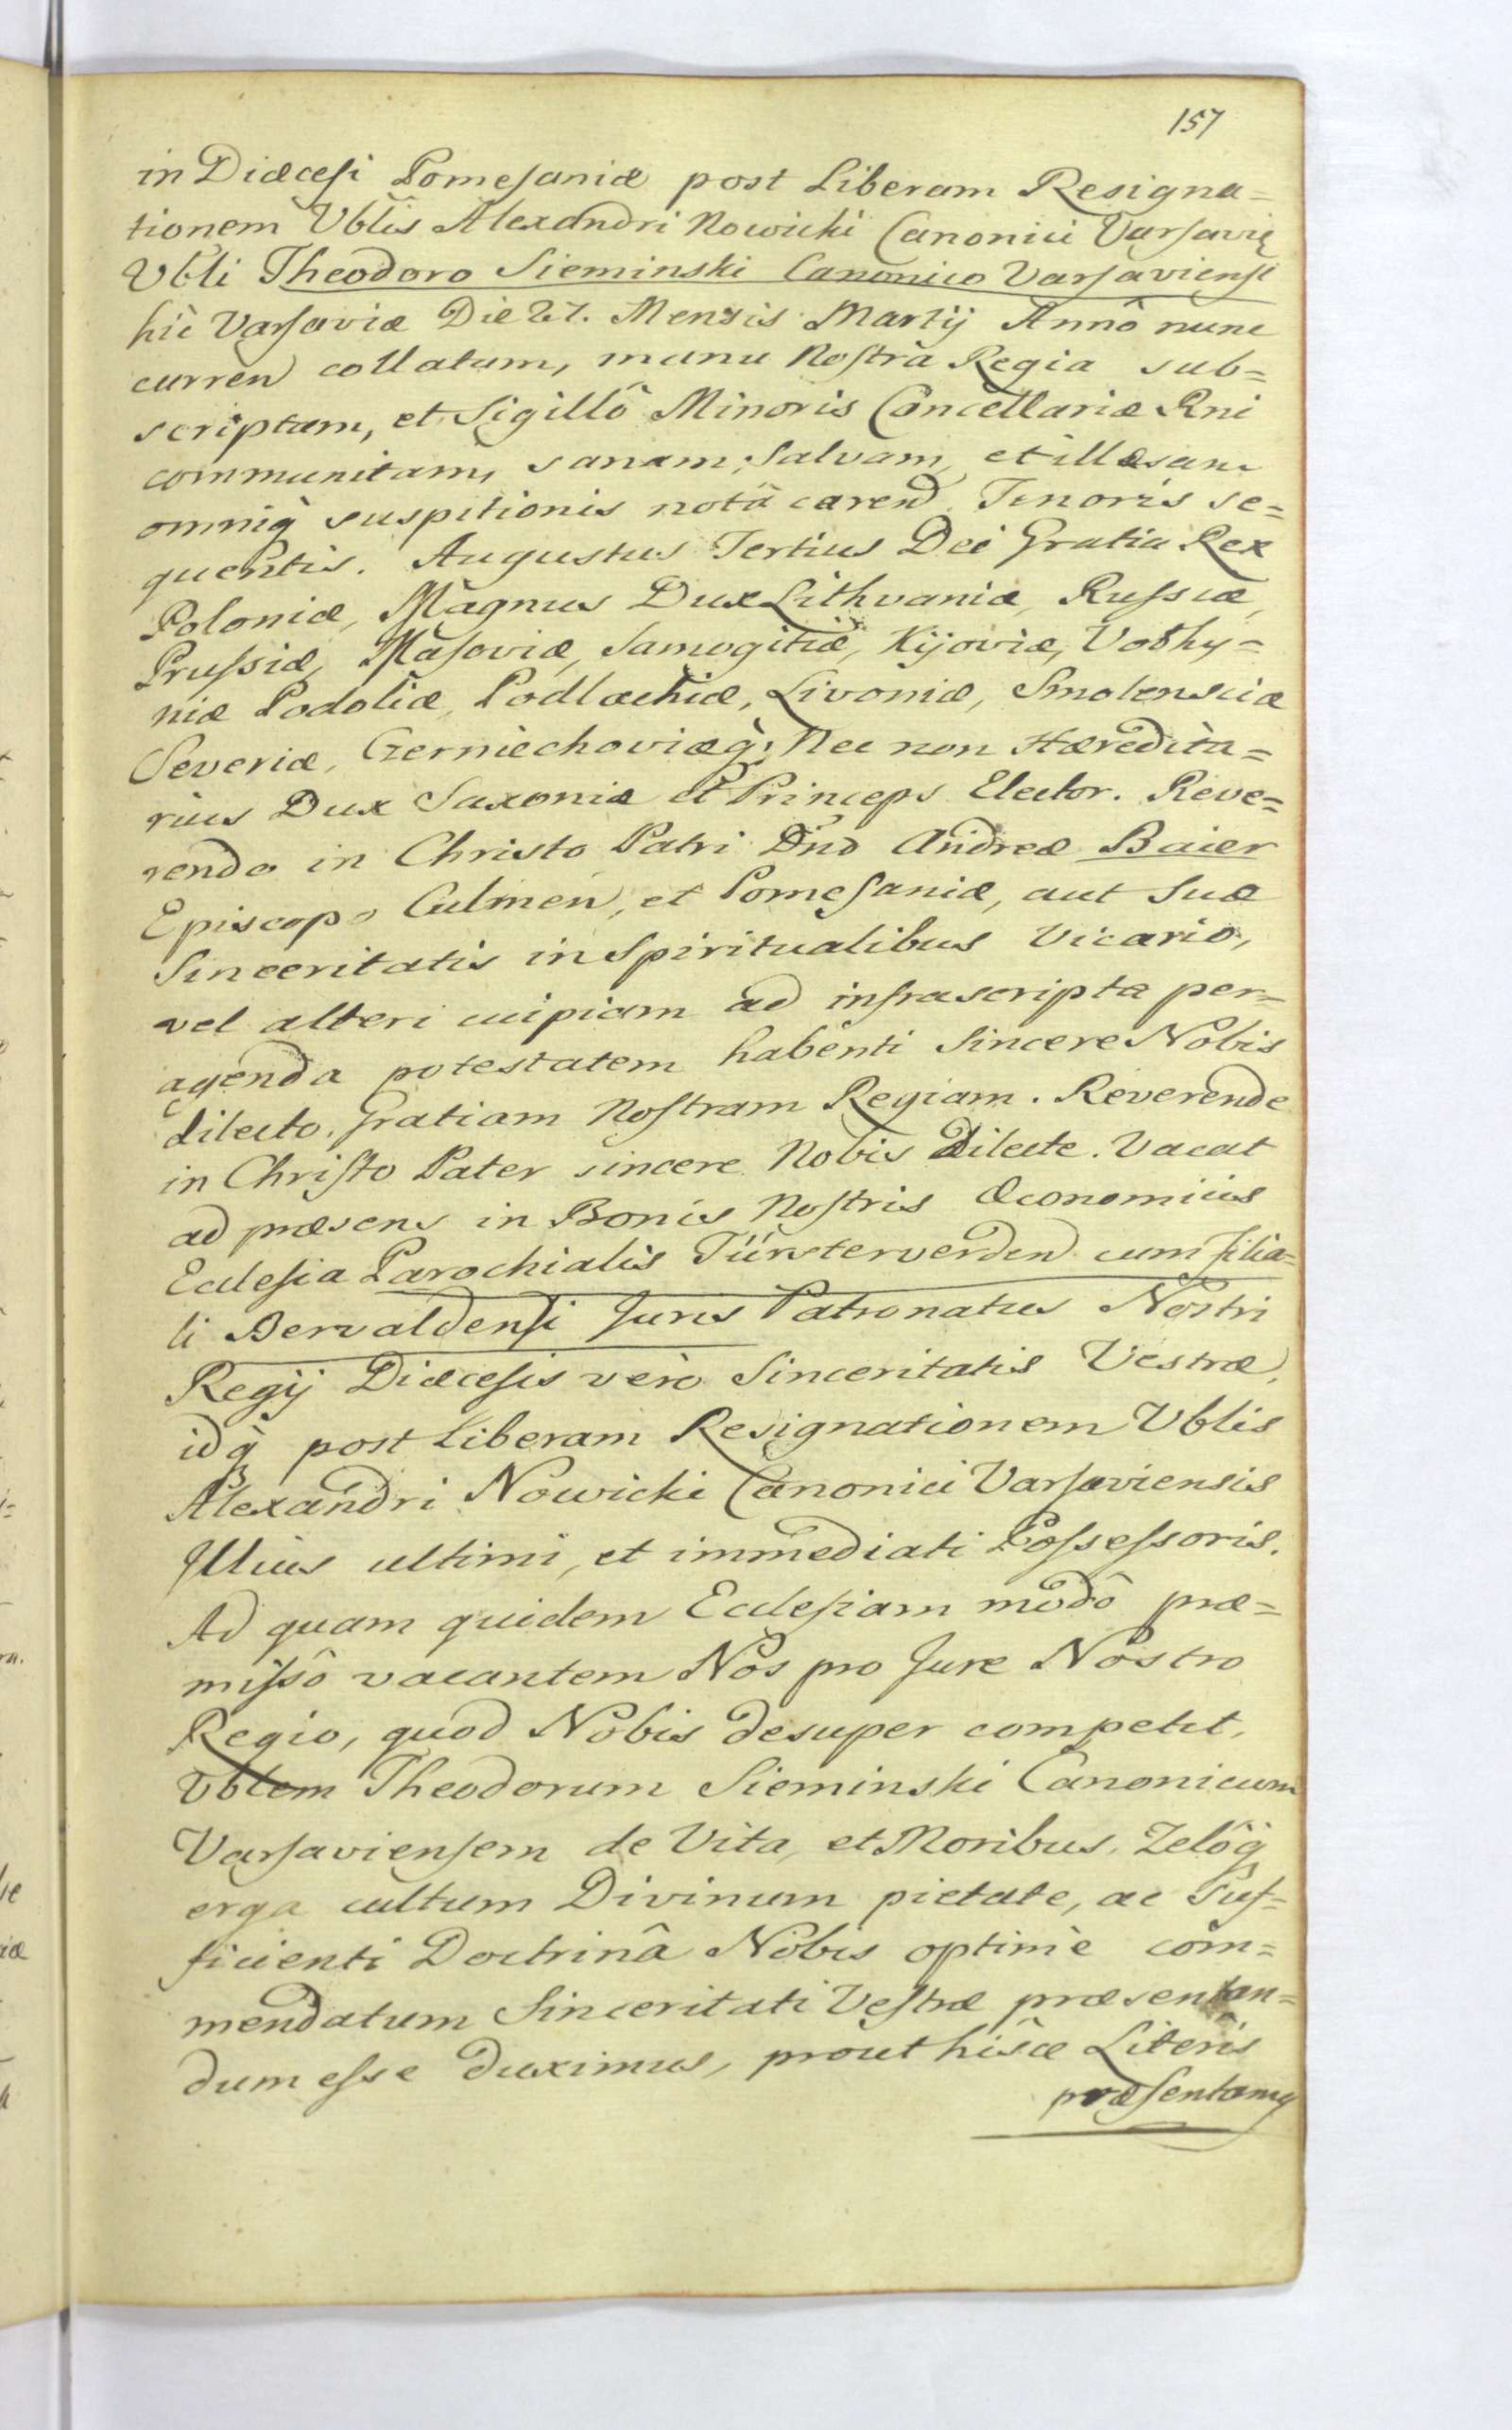 157
in Diæcesi Pomesaniæ post Liberam Resigna=
tionem Vblis Alexandri Nowicki Canonici Varsavię
Vbli Theodoro Sieminski Canonico Varsaviensi
hìc Varsaviæ Die 27. Mensis Martij Annô nunc
curren collatam, manu Nostra Regia sub=
scriptam, et Sigillô Minoris Cancellariæ Rni
communitam, sanam, Salvam, et illæsam
omniq̀ suspitionis notâ caren Tenoris se=
quentis. Augustus Tertius Dei Gratia Rex
Poloniæ, Magnus Dux Lithvaniæ, Russiæ,
Prussiæ, Masoviæ, Samogitiæ, Kijoviæ, Volhy=
niæ Podoliæ, Podlachiæ, Livoniæ, Smolensciæ
Severiæ, Czerniechoviæq̀; Nec non Hæredita=
rius Dux Saxoniæ et Princeps Elector. Reve=
rendo in Christo Patri Dnō Andreæ Baier
Episcopo Culmen, et Pomesaniæ, aut Suæ
Sinceritatis in Spiritualibus Vicario,
vel alteri cuipiam ad infrascripta per=
agenda potestatem habenti Sincere Nobis
dilecto. Gratiam Nostram Regiam. Reverende
in Christo Pater sincere Nobis Dilecte. Vacat
ad præsens in Bonis Nostris Œconomicis
Ecclesia Parochialis Fürsterverden cum filia=
li Bervaldensi Juris Patronatus Nostri
Regij Diæcesis verò Sinceritatis Vestræ,
idq̀ post Liberam Resignationem Vblis
Alexandri Nowicki Canonici Varsaviensis
Illius ultimi, et immediati Possessoris.
Ad quam quidem Ecclesiam modô præ=
missô vacantem Nos pro Jure Nostro
Regio, quod Nobis desuper competit,
Vblem Theodorum Sieminski Canonicum
Varsaviensem de Vita, et Moribus, Zelôq̀
erga cultum Divinum pietate, ac Suf=
ficienti Doctrinâ Nobis optimè com=
mendatum Sinceritati Vestræ præsentan=
dum esse duximus, prout hisce Literis
præsentamq